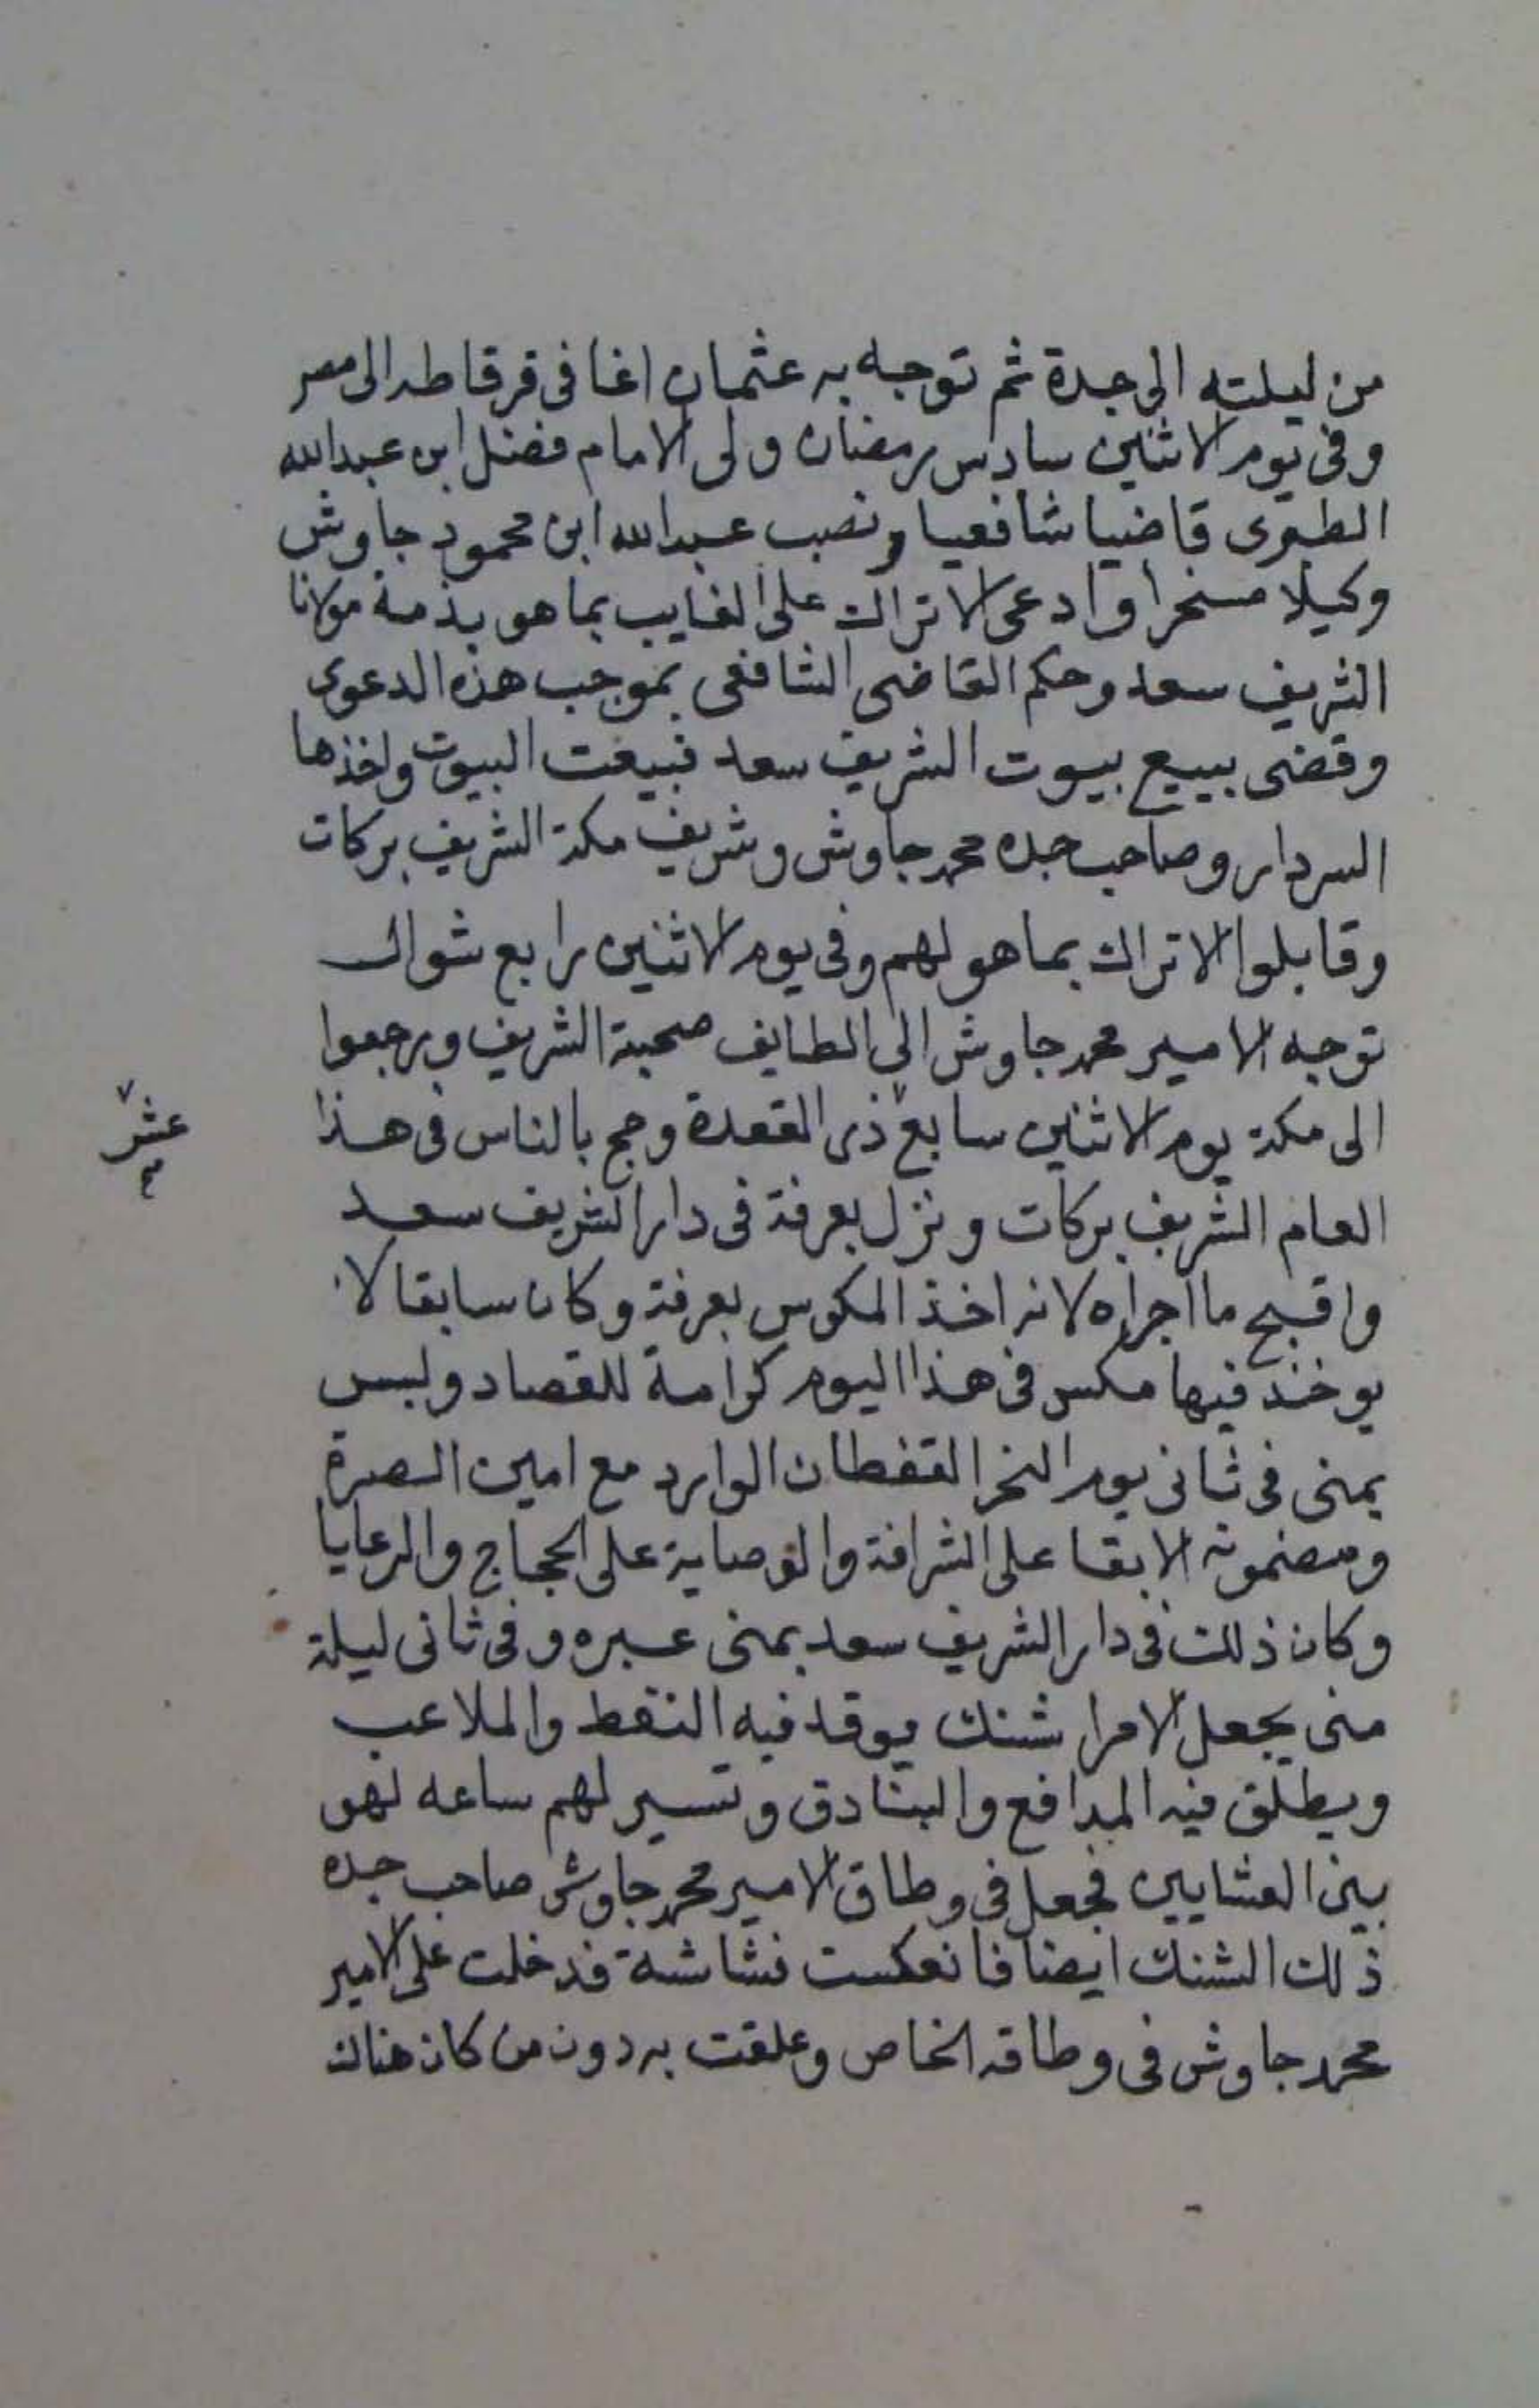 من ليلته الى جدة ثم توجه به عثمان اغا فى قرقاطه الى مصر
وفى يوم الاثنين سادس رمضان ولى الامام فضل ابن عبدالله
الطبرى قاضيا شافعيا ونصب عبدالله ابن محمود جاوش
وكيلا مسخرا وادعى الاتراك على الغايب بما هو بذمة مولانا
الشريف سعد وحكم القاضى الشافعى بموجب هذه الدعوى
وقضى ببيع بيوت الشريف سعد فبيعت البيوت واخذها
السردار وصاحب جده محمد جاوش وشريف مكة الشريف بركات
وقابلوا الاتراك بما هو لهم وفى يوم الاثنين رابع شوال
توجه الامير محمد جاوش الى الطايف صحبة الشريف ورجعوا
الى مكة يوم الاثنين سابع ٧ ذى القعدة وحج بالناس فى هذا
٧ عشر
العام الشريف بركات ونزل بعرفة فى دار الشريف سعد
واقبح ما اجراه لانه اخذ المكوس بعرفة وكان سابقا لا
يوخذ فيها مكس فى هذا اليوم كرامة للقصاد ولبس
بمنى فى ثانى يوم النحر القفطان الوارد مع امين الصرة
ومضمونه الابقا على الشرافة والوصاية على الحجاج والرعايا
وكان ذلك فى دار الشريف سعد بمنى عبره وفى ثانى ليلة
منى يجعل الامرا شنك يوقد فيه النفط والملاعب
ويطلق فيه المدافع والبنادق وتسير لهم ساعه لهو
بين العشايين فجعل فى وطاق الامير محمد جاوش صاحب جده
ذلك الشنك ايضا فانعكست نشاشة فدخلت على الامير
محمد جاوش فى وطاقه الخاص وعلقت به دون من كان هناك